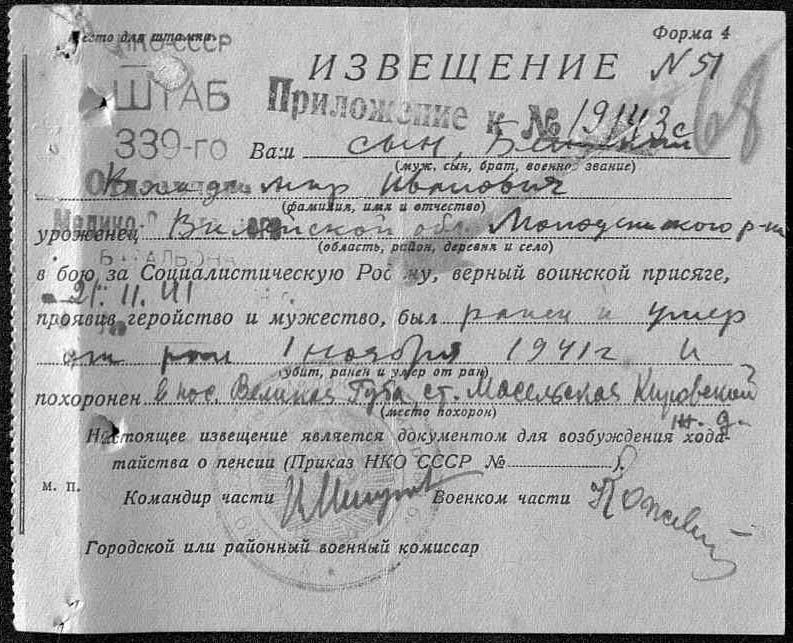 Место для штампа
Форма 4
НКО-СССР
ИЗВЕЩЕНИЕ N 51
ШТАБ
Приложение к № 19143с
68
339-го
Ваш сын,
(муж, сын, брат, военное звание)
Владимир Иванович
(фамилия, имя и отчество)
уроженец Вилейской обл. Молодечнского р-на
(область, район, деревня и село)
БАТАЛЬОНА
в бою за Социалистическую Родину, верный воинской присяге,
21. 11. 41
проявив геройство и мужество, был ранен и умер
от ран 1 ноября 1941г и
(убит, ранен и умер от ран)
похоронен в пос. Великая Губа, ст. Масельская Кировской
ж. д.
(место похорон)
Настоящее извещение является документом для возбуждения хода-
тайства о пенсии (Приказ НКО СССР № ).
м. п.
Командир части Военком части
Городской или районный военный комиссар